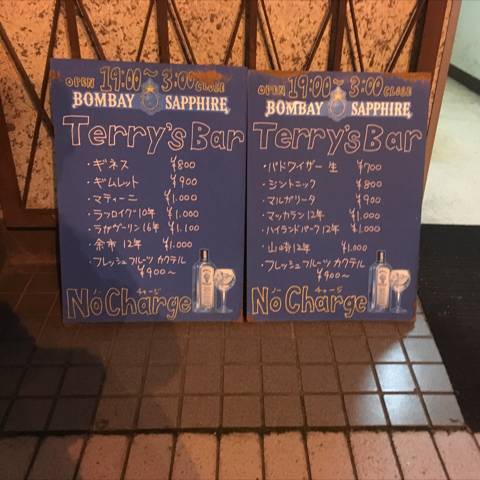 OPEN 19:00~3:00 CLOSE
BOMBAY SAPPHIRE
Terry's Bar
・ギネス ¥800
・ギムレット ¥900
・マティーニ ¥1.000
・ラフロイグ10年 ¥1.000
・ラガヴーリン16年 ¥1.100
・余市12年 ¥1.000
・フレッシュフルーツカクテル
¥900~
ノー チャージ
No Charge
OPEN 19:00~3:00 CLOSE
BOMBAY SAPPHIRE
Terry's Bar
・バドワイザー 生 ¥700
・ジントニック ¥800
・マルガリータ ¥900
・マッカラン12年 ¥1.000
・ハイランドパーク12年 ¥1.000
・山崎12年 ¥1.000
・フレッシュフルーツカクテル
¥900~
ノー チャージ
No Charge